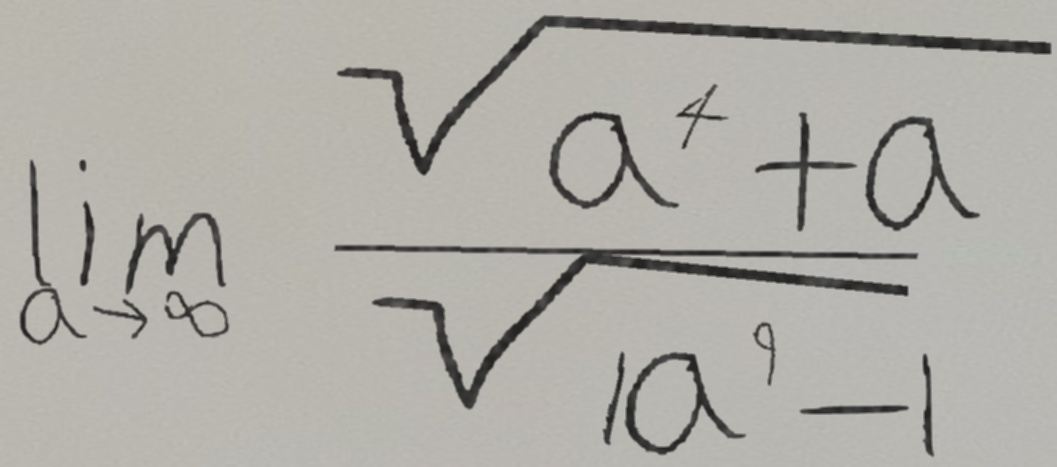 \lim_{a \to \infty} \frac{\sqrt{a^4 + a}}{\sqrt{1a^9 - 1}}